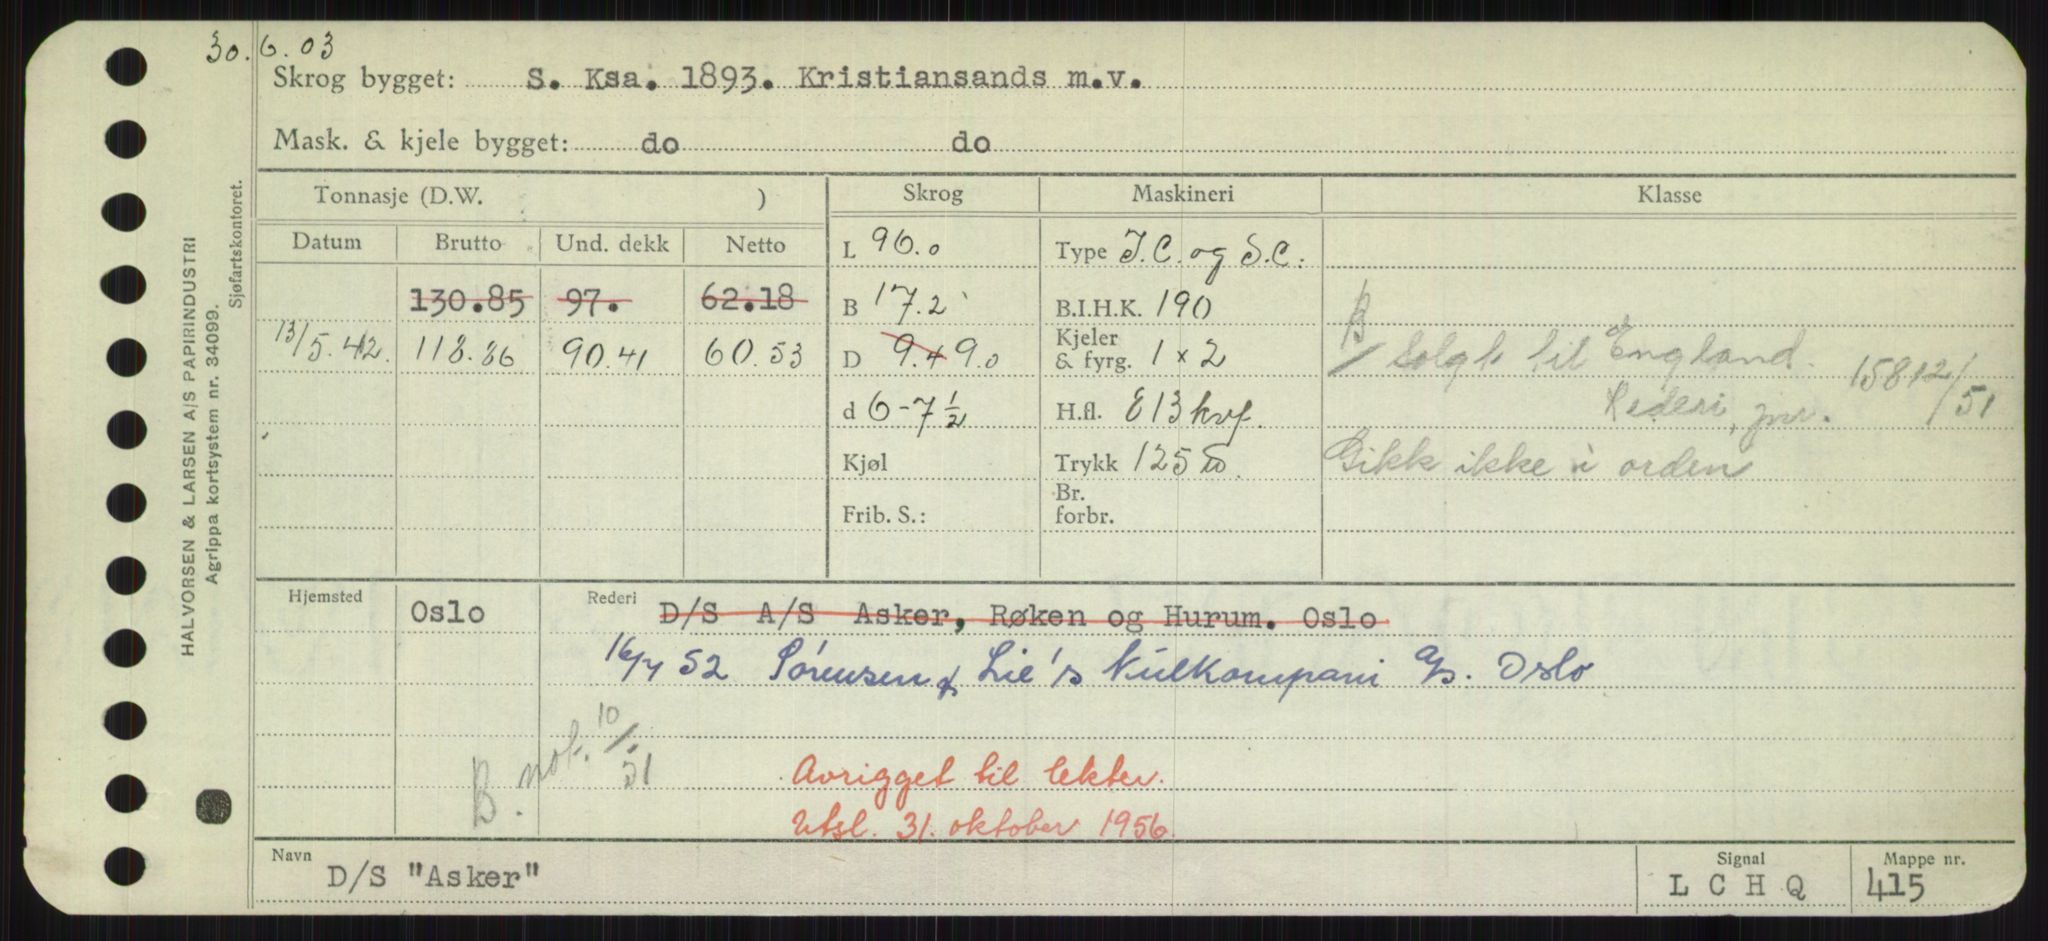 30.6.03
Skrog bygget: S. Ksa. 1893. Kristiansands m.v.
Mask. & kjele bygget: do do
HALVORSEN & LARSEN A/S PAPIRINDUSTRI
Agrippa kortsystem nr. 34099.
Sjøfartskontoret.
Tonnasje (D.W. ) Skrog Maskineri Klasse
Datum Brutto Und. dekk Netto
L 96.0 Type T.C. og S.C.
130.85 97. 62.18
B 17.2 B.I.H.K. 190
13/5.42. 118.86 90.41 60.53
D 9.4 9.0 Kjeler & fyrg. 1 x 2
B/ Solgt til England.
Rederi, jnr. 15812/51
d 6-7½ H.fl. 813 kvf.
Kjøl Trykk 125
Gikk ikke i orden
Frib. S.: Br. forbr.
Hjemsted Oslo Rederi D/S A/S Asker, Røken og Hurum. Oslo
52 Sørensen & Lie's Kullkompani A/S. Oslo
B. not. 10/51
Avrigget til lekter.
Utsl. 31. oktober 1956.
Navn D/S "Asker" Signal L C H Q Mappe nr. 415